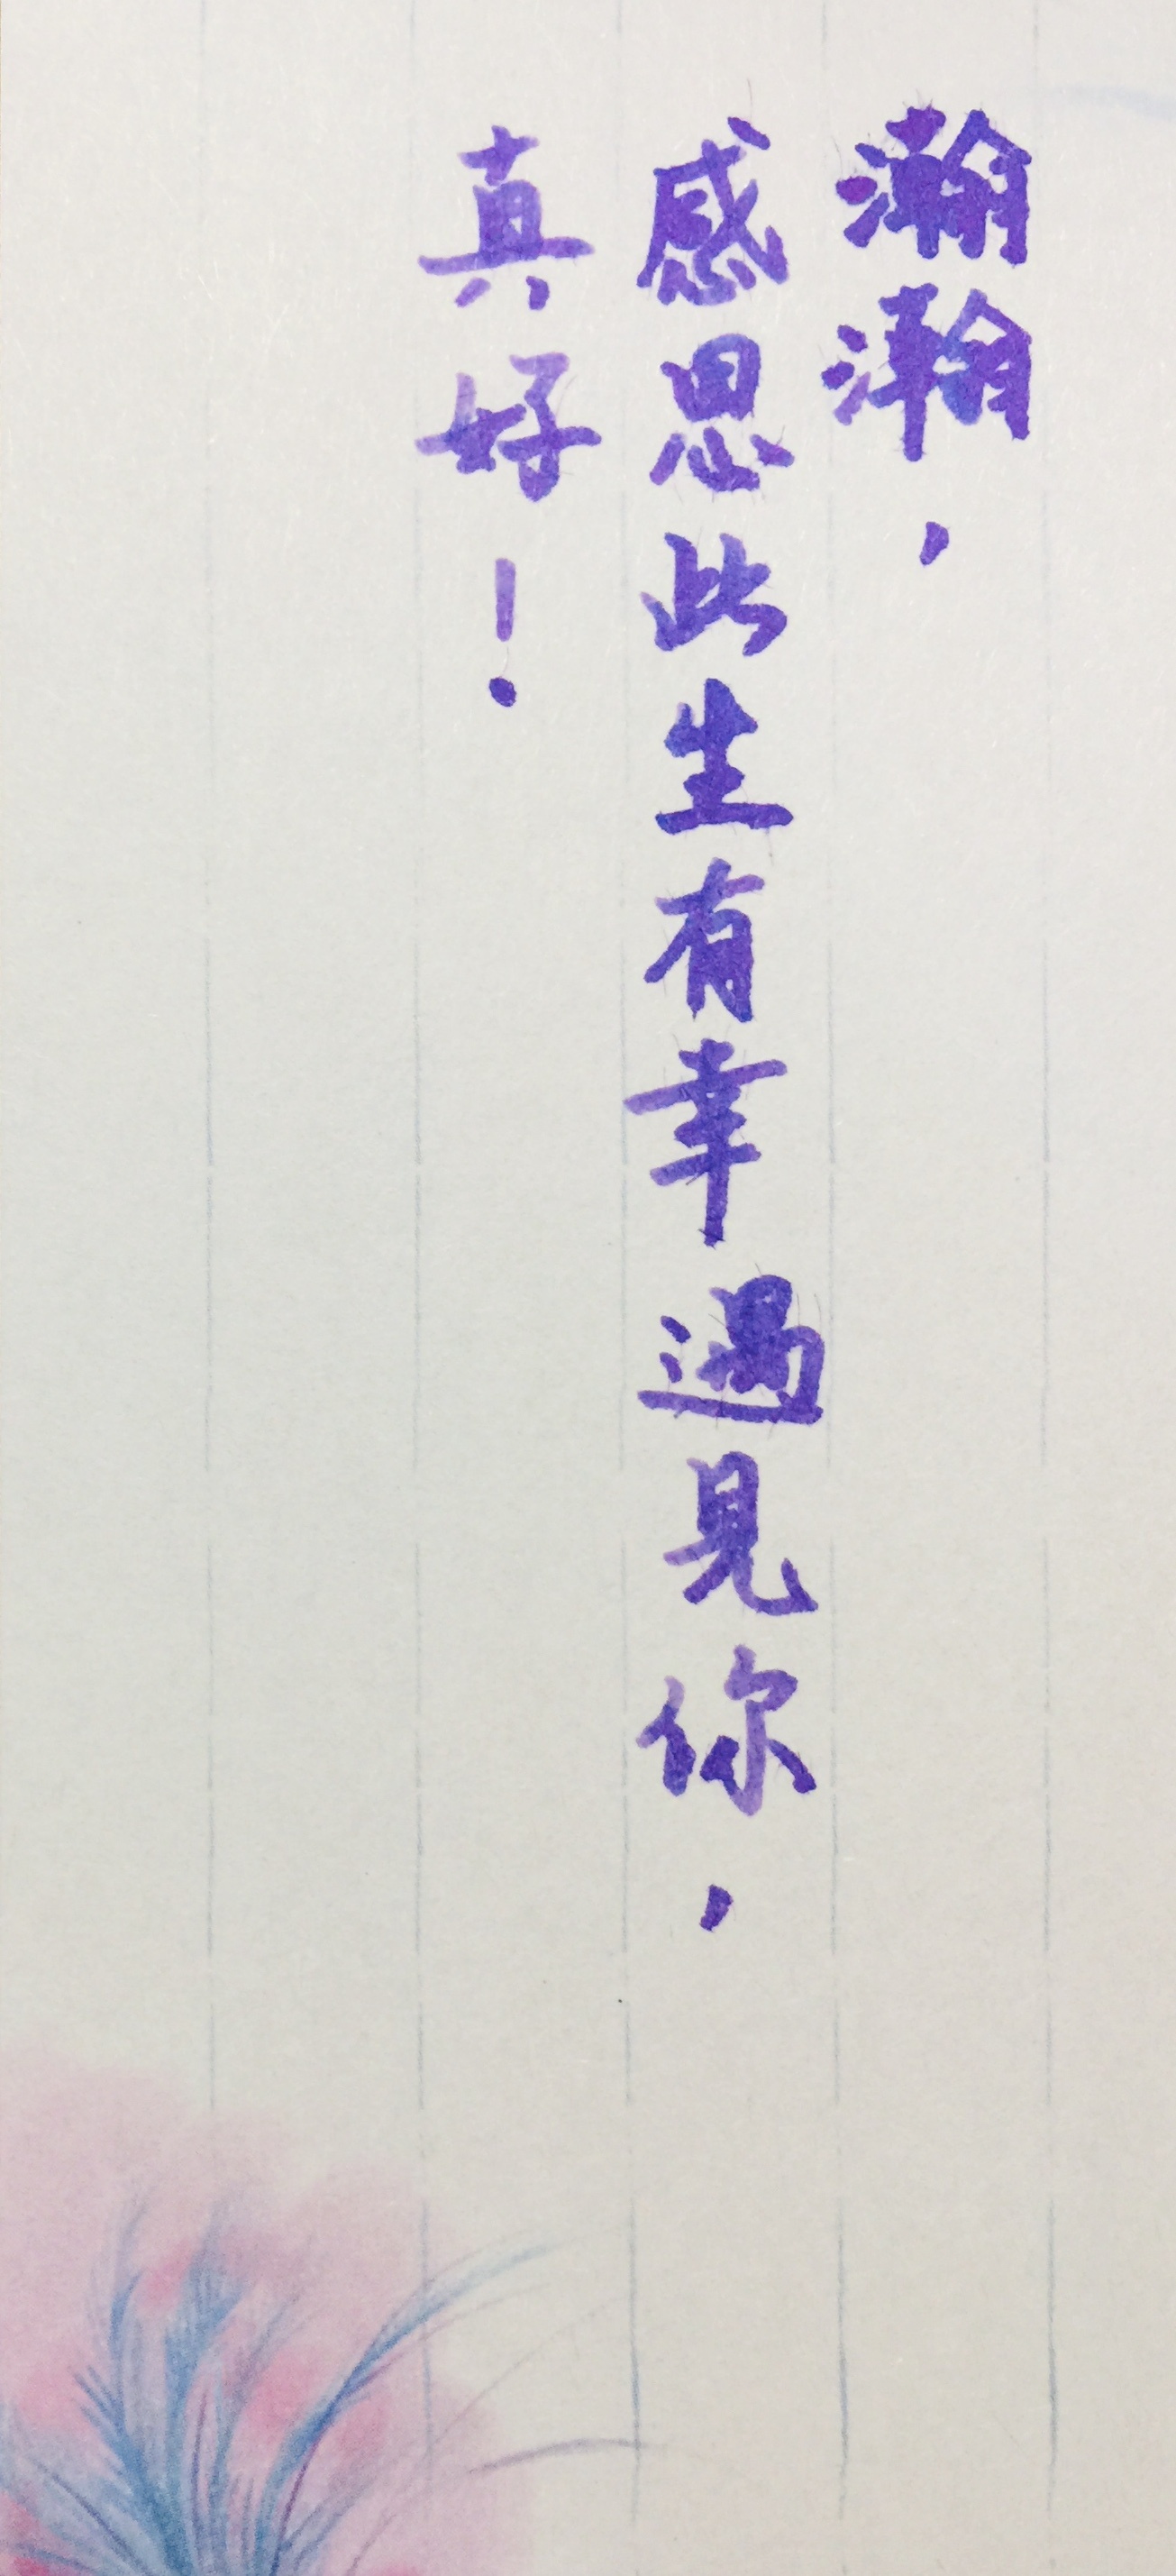 瀚瀚，
感恩此生有幸遇見你，
真好！